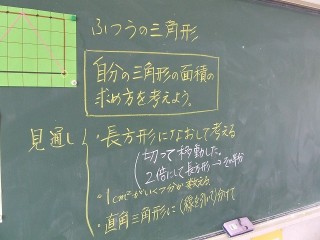 ふつうの三角形
自分の三角形の面積の
求め方を考えよう。
見通し
・長方形になおして考える
(切って移動した。
2倍にして長方形→その半分
・1cm²がいくつ分か数える
・直角三角形に(線を引いて)分けて